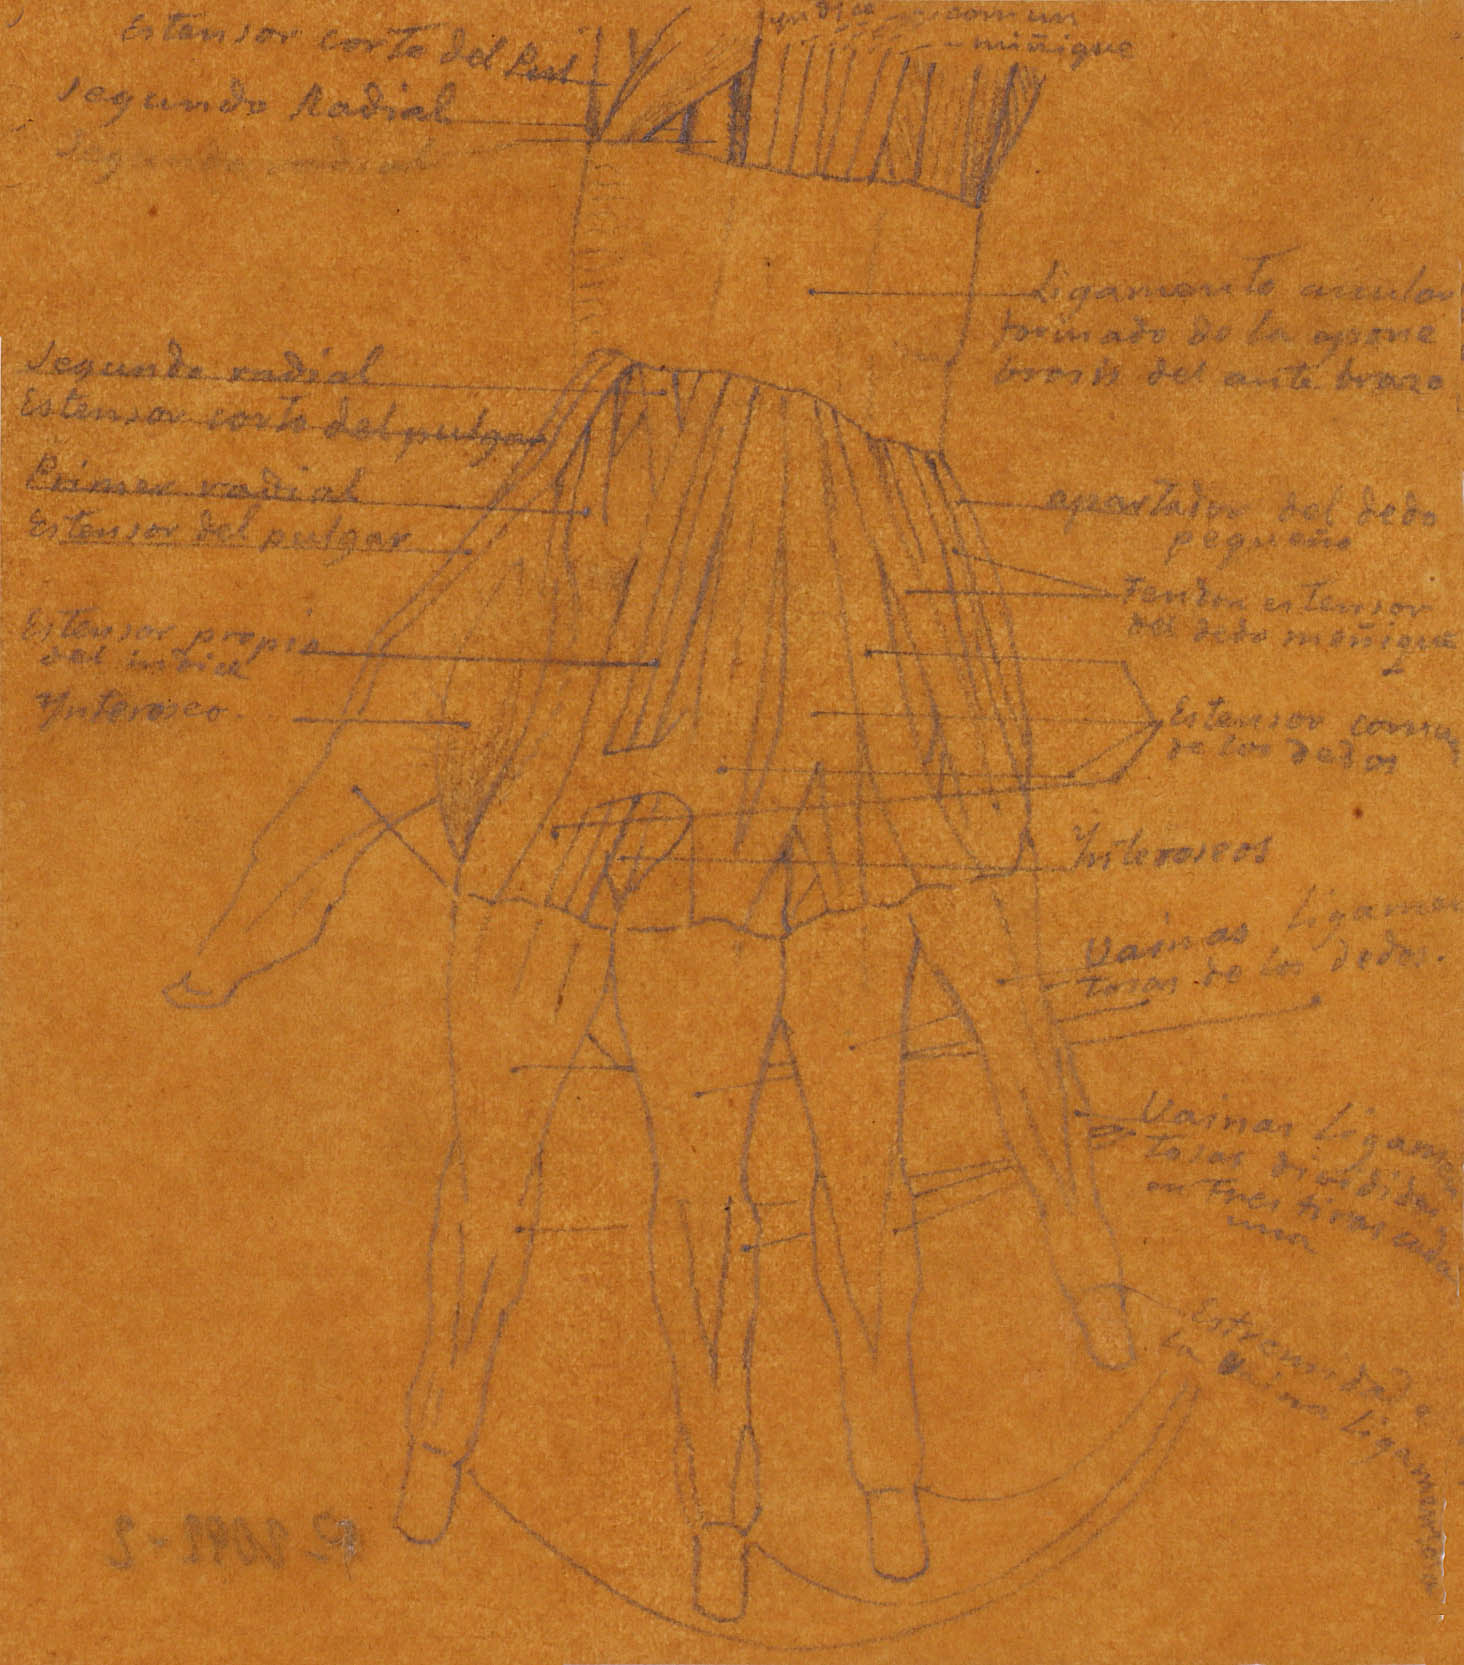 Estensor corto del Pul
indice comun
miñique
Segundo Radial
Segundo radial
Ligamento anular
formado de la apone
brosis del ante brazo
Segundo radial
Estensor corto del pulgar
Primer radial
Estensor del pulgar
apartador del dedo
pequeño
Tendon estensor
del dedo meñique
Estensor propio
del indice
Ynteroseo.
Estensor comun
de los dedos
Ynteroseos
Vainas Ligamen
tosas de los dedos.
Vainas Ligamen
tosas dividida
en tres tiras cada
una
Estremidad d
la Vaina Ligamentosa